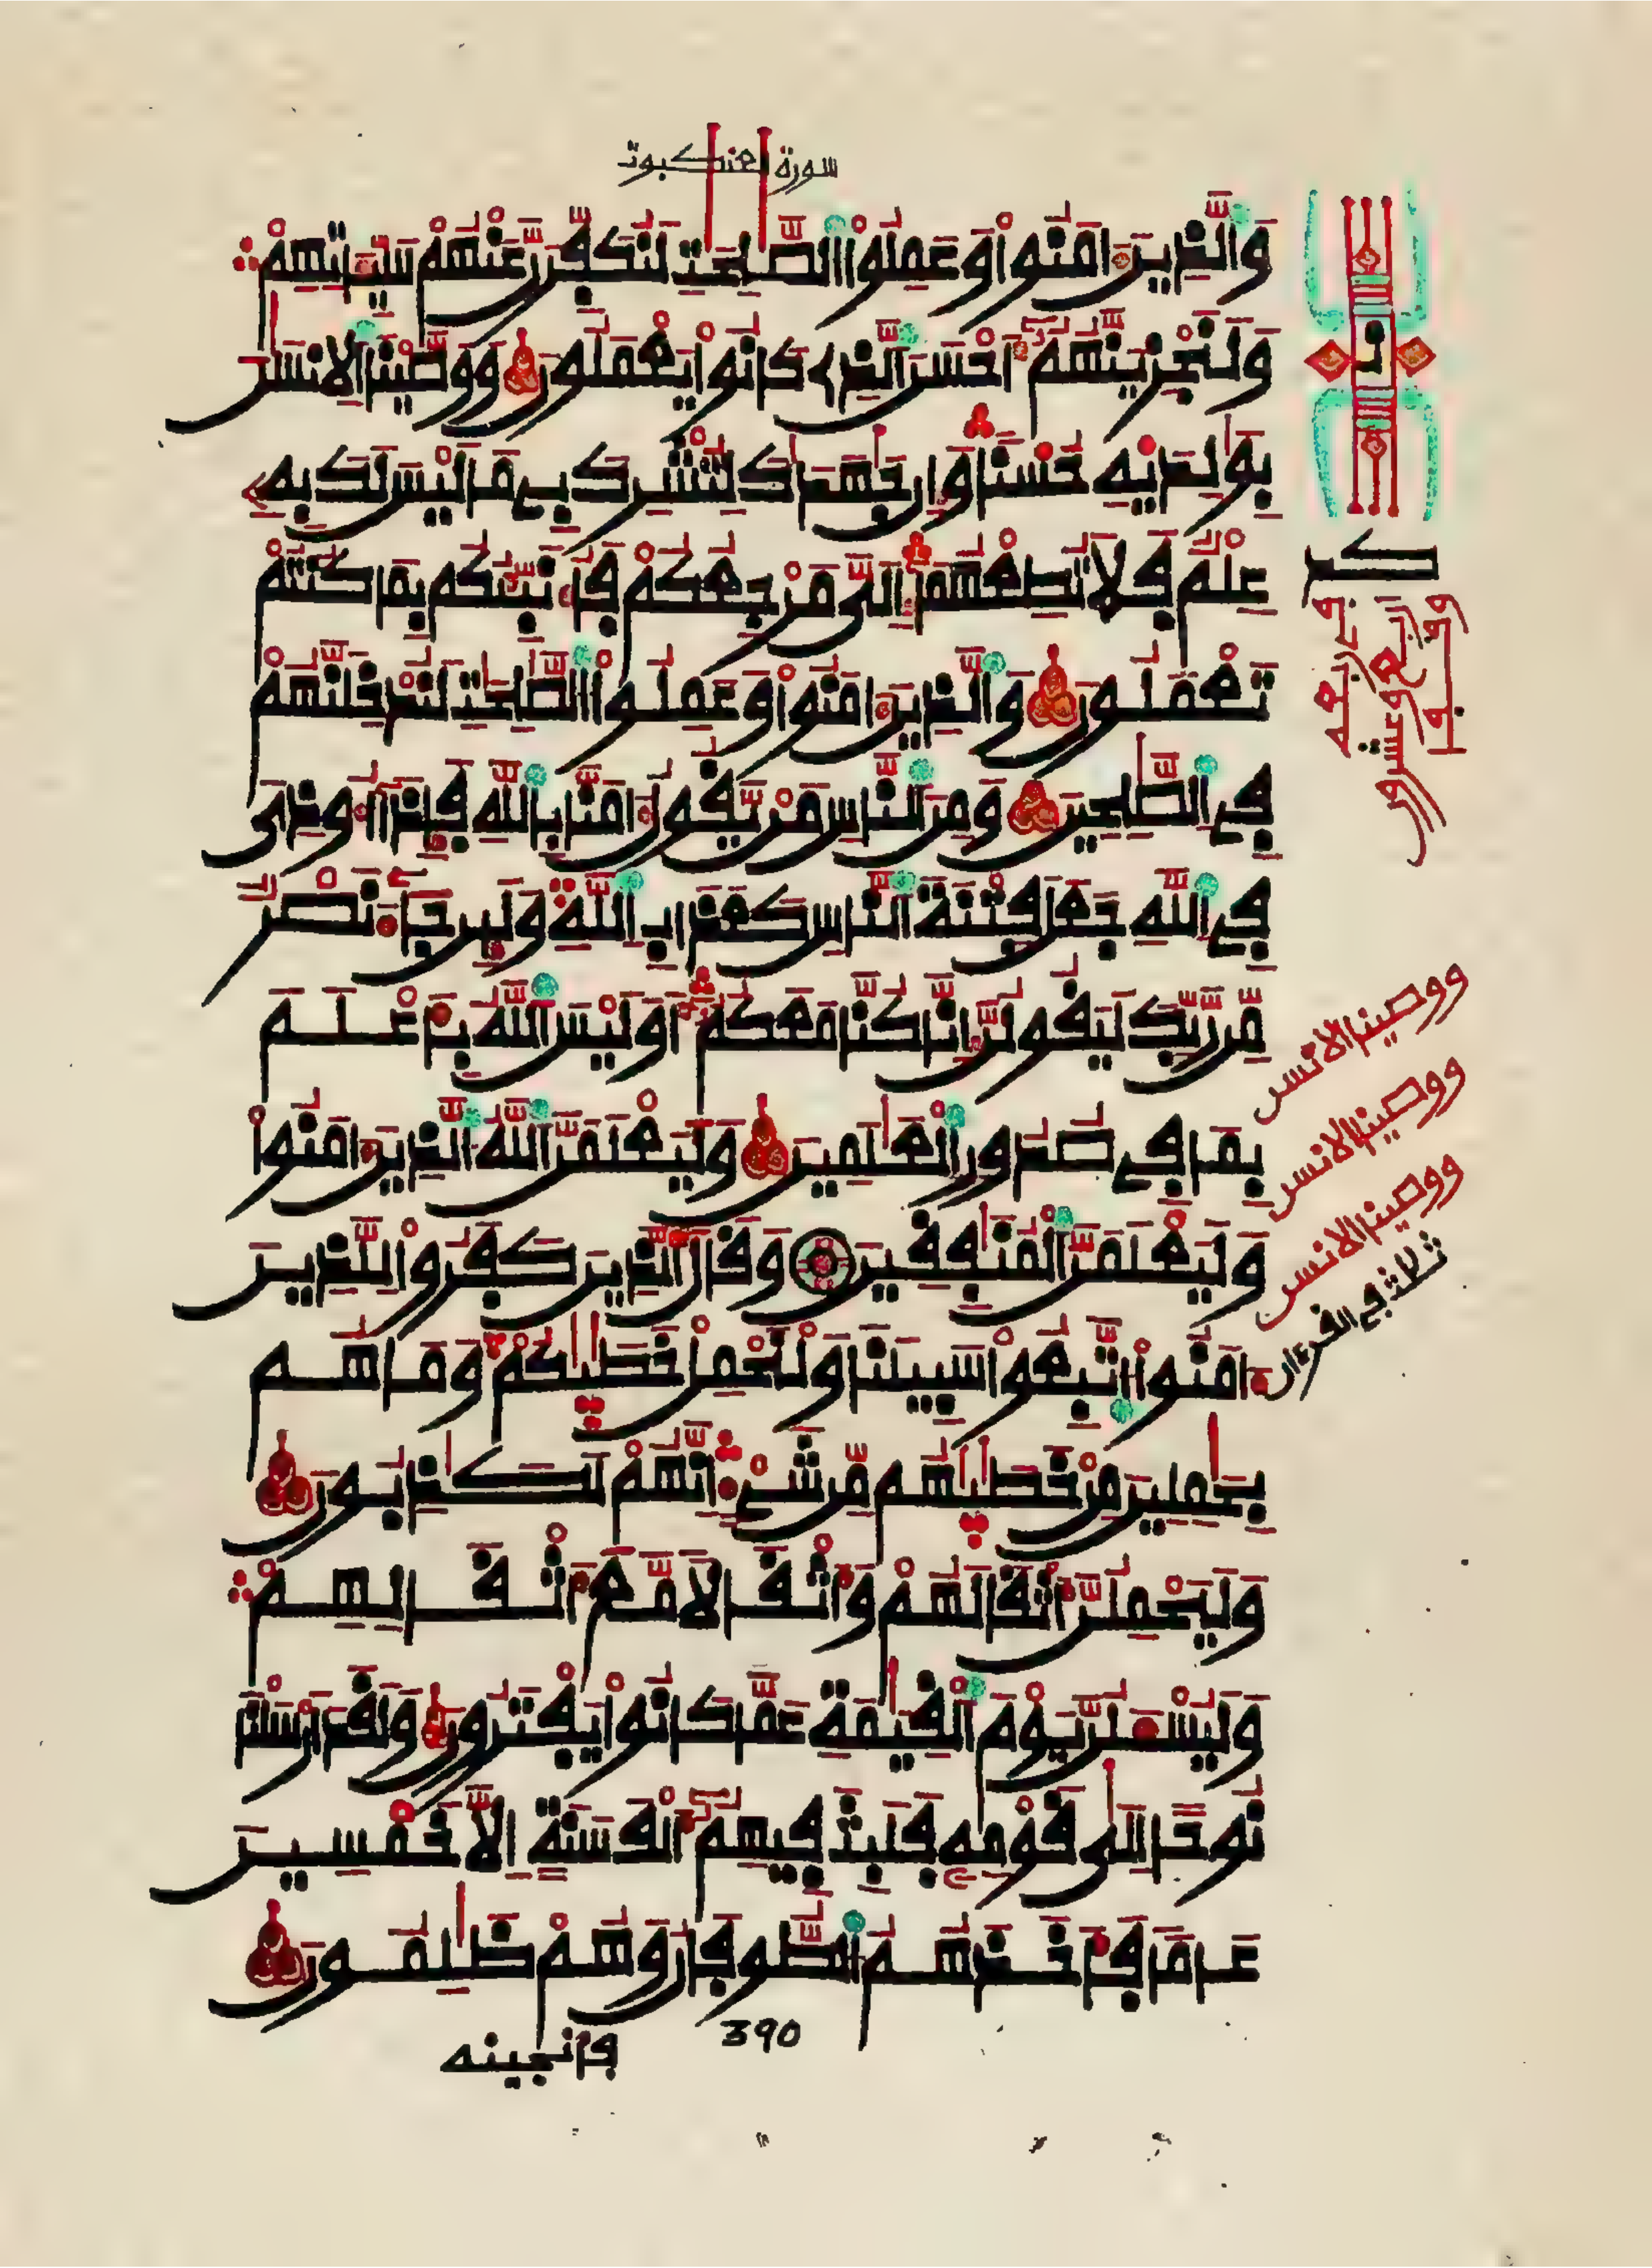 سورة العنكبوت
وَالذِينَ ءَامَنُواْ وَعَمِلُواْ الصَّٰلِحَٰتِ لَنُكَفِّرَنَّ عَنْهُمْ سَيِّـَٔاتِهِمْ
وَلَنَجْزِيَنَّهُمُۥٓ أَحْسَنَ الذِے كَانُواْ يَعْمَلُونَ وَوَصَّيْنَا الِانسَٰنَ
بِوَٰلِدَيْهِ حُسْناً وَإِن جَٰهَدَٰكَ لِتُشْرِكَ بِے مَا لَيْسَ لَكَ بِهِۦ
عِلْمٌ فَلَا تُطِعْهُمَآ إِلَيَّ مَرْجِعُكُمْ فَأُنَبِّئُكُم بِمَا كُنتُمْ
تَعْمَلُونَ وَالذِينَ ءَامَنُواْ وَعَمِلُواْ الصَّٰلِحَٰتِ لَنُدْخِلَنَّهُمْ
فِے الصَّٰلِحِينَ وَمِنَ النَّاسِ مَنْ يَّقُولُ ءَامَنَّا بِاللَّهِ فَإِذَآ أُوذِيَ
فِے اللَّهِ جَعَلَ فِتْنَةَ النَّاسِ كَعَذَابِ اللَّهِ وَلَئِن جَآءَ نَصْرٌ
مِّن رَّبِّكَ لَيَقُولُنَّ إِنَّا كُنَّا مَعَكُمُۥٓ أَوَلَيْسَ اللَّهُ بِأَعْلَمَ
بِمَا فِے صُدُورِ الْعَٰلَمِينَ وَلَيَعْلَمَنَّ اللَّهُ الذِينَ ءَامَنُواْ
وَلَيَعْلَمَنَّ الْمُنَٰفِقِينَ وَقَالَ الذِينَ كَفَرُواْ لِلَّذِينَ
ءَامَنُواْ اتَّبِعُواْ سَبِيلَنَا وَلْنَحْمِلْ خَطَٰيَٰكُمْ وَمَا هُم
بِحَٰمِلِينَ مِنْ خَطَٰيَٰهُم مِّن شَےْءٍ إِنَّهُمْ لَكَٰذِبُونَ
وَلَيَحْمِلُنَّ أَثْقَالَهُمْ وَأَثْقَالاً مَّعَ أَثْقَالِهِمْ
وَلَيُسْـَٔلُنَّ يَوْمَ الْقِيَٰمَةِ عَمَّا كَانُواْ يَفْتَرُونَ وَلَقَدَ اَرْسَلْنَا
نُوحاً إِلَىٰ قَوْمِهِۦ فَلَبِثَ فِيهِمُۥٓ أَلْفَ سَنَةٍ إِلَّا خَمْسِينَ
عَاماً فَأَخَذَهُمُ الطُّوفَانُ وَهُمْ ظَٰلِمُونَ
390
فأنجينه
ووصينا الانسن
ووصينا الانسن
ووصينا الانسن
ثلاثة في القرءان